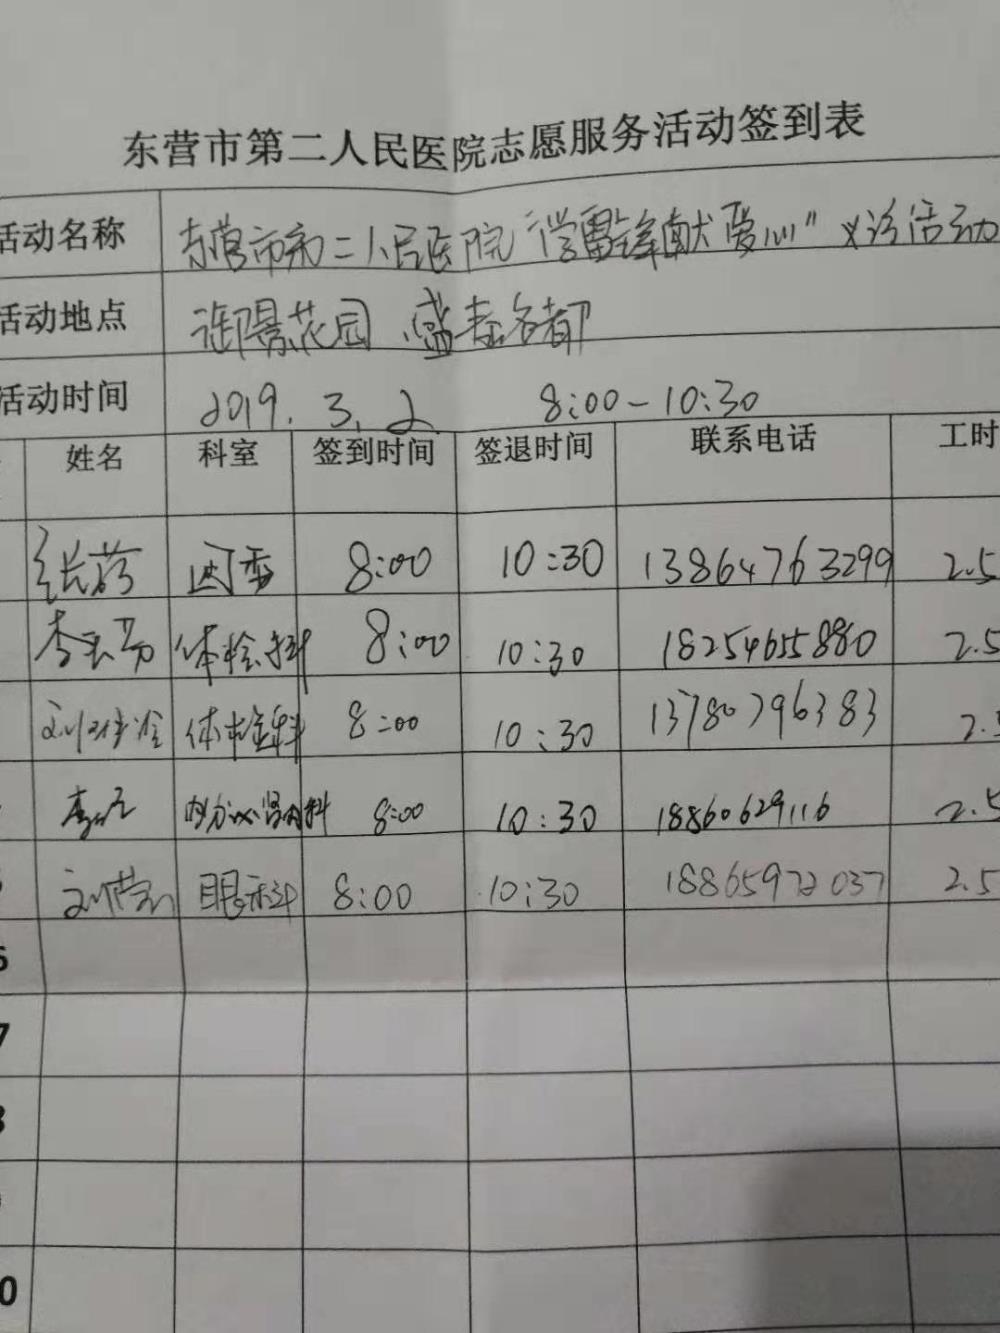 东营市第二人民医院志愿服务活动签到表
活动名称 东营市第二人民医院“学雷锋献爱心”义诊活动
活动地点 御景花园 盛泰名都
活动时间 2019.3.2 8:00-10:30
姓名 科室 签到时间 签退时间 联系电话 工时
8:00 10:30 13864763299 2.5
体检科 8:00 10:30 18254655880 2.5
体检科 8:00 10:30 13780796383
内分泌肾内科 8:00 10:30 18860629116 2.5
眼科 8:00 10:30 18865972037 2.5
6
7
8
9
10